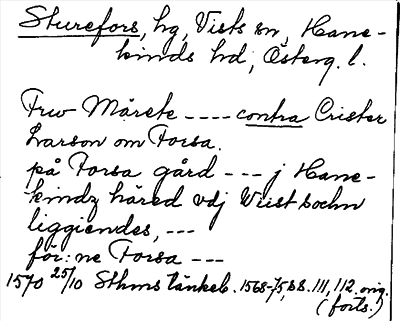 Sturefors, hg, Vists sn, Hane-
kinds hd, Österg. l.
Frw Märete ---- contra Crister
Larson om Forsa.
på Forsa gård --- j Hane-
kindz häred vdj Wiist sochn
liggiendes, ---
för: ne Forsa ---
1570 25/10 Sthms tänkeb. 1568-75, bd. 111, 112. orig.
(forts.)